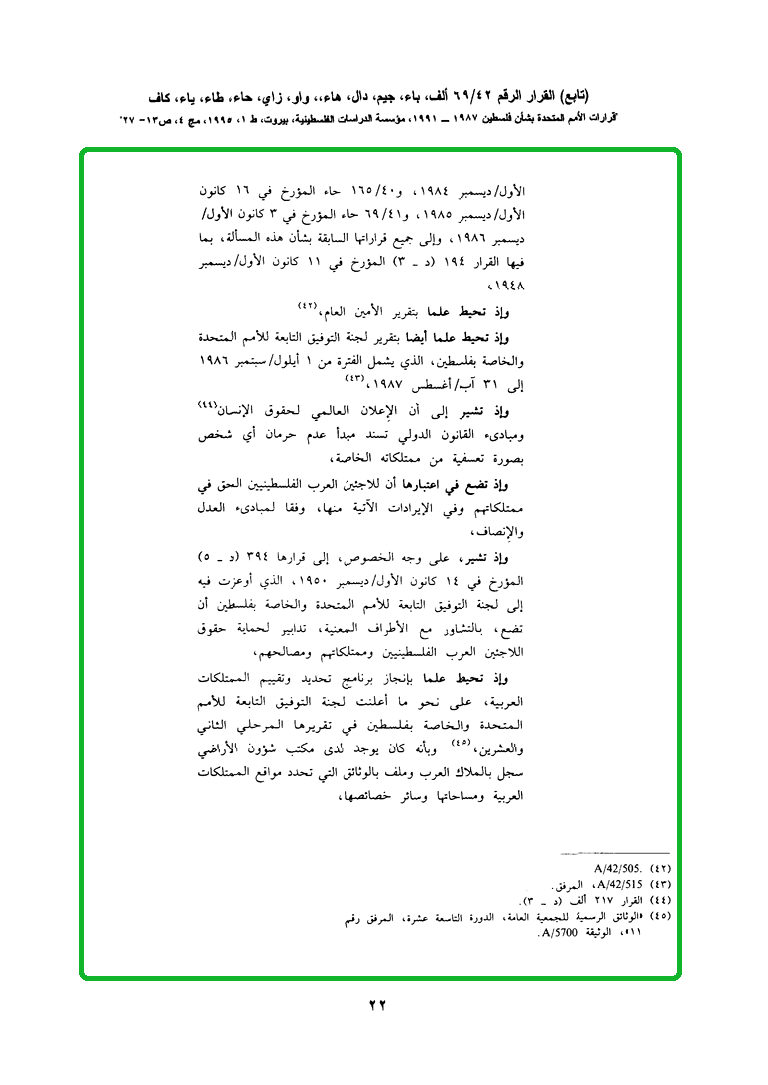 (تابع) القرار الرقم ٦٩/٤٢ ألف، باء، جيم، دال، هاء،، واو، زاي، حاء، طاء، ياء، كاف
"قرارات الأمم المتحدة بشأن فلسطين ١٩٨٧ ــ ١٩٩١، مؤسسة الدراسات الفلسطينية، بيروت، ط ١، ١٩٩٥، مج ٤، ص١٣- ٢٧"
الأول/ديسمبر ١٩٨٤، و١٦٥/٤٠ حاء المؤرخ في ١٦ كانون
الأول/ديسمبر ١٩٨٥، و٦٩/٤١ حاء المؤرخ في ٣ كانون الأول/
ديسمبر ١٩٨٦، وإلى جميع قراراتها السابقة بشأن هذه المسألة، بما
فيها القرار ١٩٤ (د ـ ٣) المؤرخ في ١١ كانون الأول/ديسمبر
١٩٤٨،
وإذ تحيط علما بتقرير الأمين العام،(٤٢)
وإذ تحيط علما أيضا بتقرير لجنة التوفيق التابعة للأمم المتحدة
والخاصة بفلسطين، الذي يشمل الفترة من ١ أيلول/سبتمبر ١٩٨٦
إلى ٣١ آب/أغسطس ١٩٨٧،(٤٣)
وإذ تشير إلى أن الإعلان العالمي لحقوق الإنسان(٤٤)
ومبادىء القانون الدولي تسند مبدأ عدم حرمان أي شخص
بصورة تعسفية من ممتلكاته الخاصة،
وإذ تضع في اعتبارها أن للاجئين العرب الفلسطينيين الحق في
ممتلكاتهم وفي الإيرادات الآتية منها، وفقا لمبادىء العدل
والإنصاف،
وإذ تشير، على وجه الخصوص، إلى قرارها ٣٩٤ (د ـ ٥)
المؤرخ في ١٤ كانون الأول/ديسمبر ١٩٥٠، الذي أوعزت فيه
إلى لجنة التوفيق التابعة للأمم المتحدة والخاصة بفلسطين أن
تضع، بالتشاور مع الأطراف المعنية، تدابير لحماية حقوق
اللاجئين العرب الفلسطينيين وممتلكاتهم ومصالحهم،
وإذ تحيط علما بإنجاز برنامج تحديد وتقييم الممتلكات
العربية، على نحو ما أعلنت لجنة التوفيق التابعة للأمم
المتحدة والخاصة بفلسطين في تقريرها المرحلي الثاني
والعشرين،(٤٥) وبأنه كان يوجد لدى مكتب شؤون الأراضي
سجل بالملاك العرب وملف بالوثائق التي تحدد مواقع الممتلكات
العربية ومساحاتها وسائر خصائصها،
(٤٢) A/42/505.
(٤٣) A/42/515، المرفق.
(٤٤) القرار ٢١٧ ألف (د ـ ٣).
(٤٥) «الوثائق الرسمية للجمعية العامة، الدورة التاسعة عشرة، المرفق رقم
١١»، الوثيقة A/5700.
٢٢